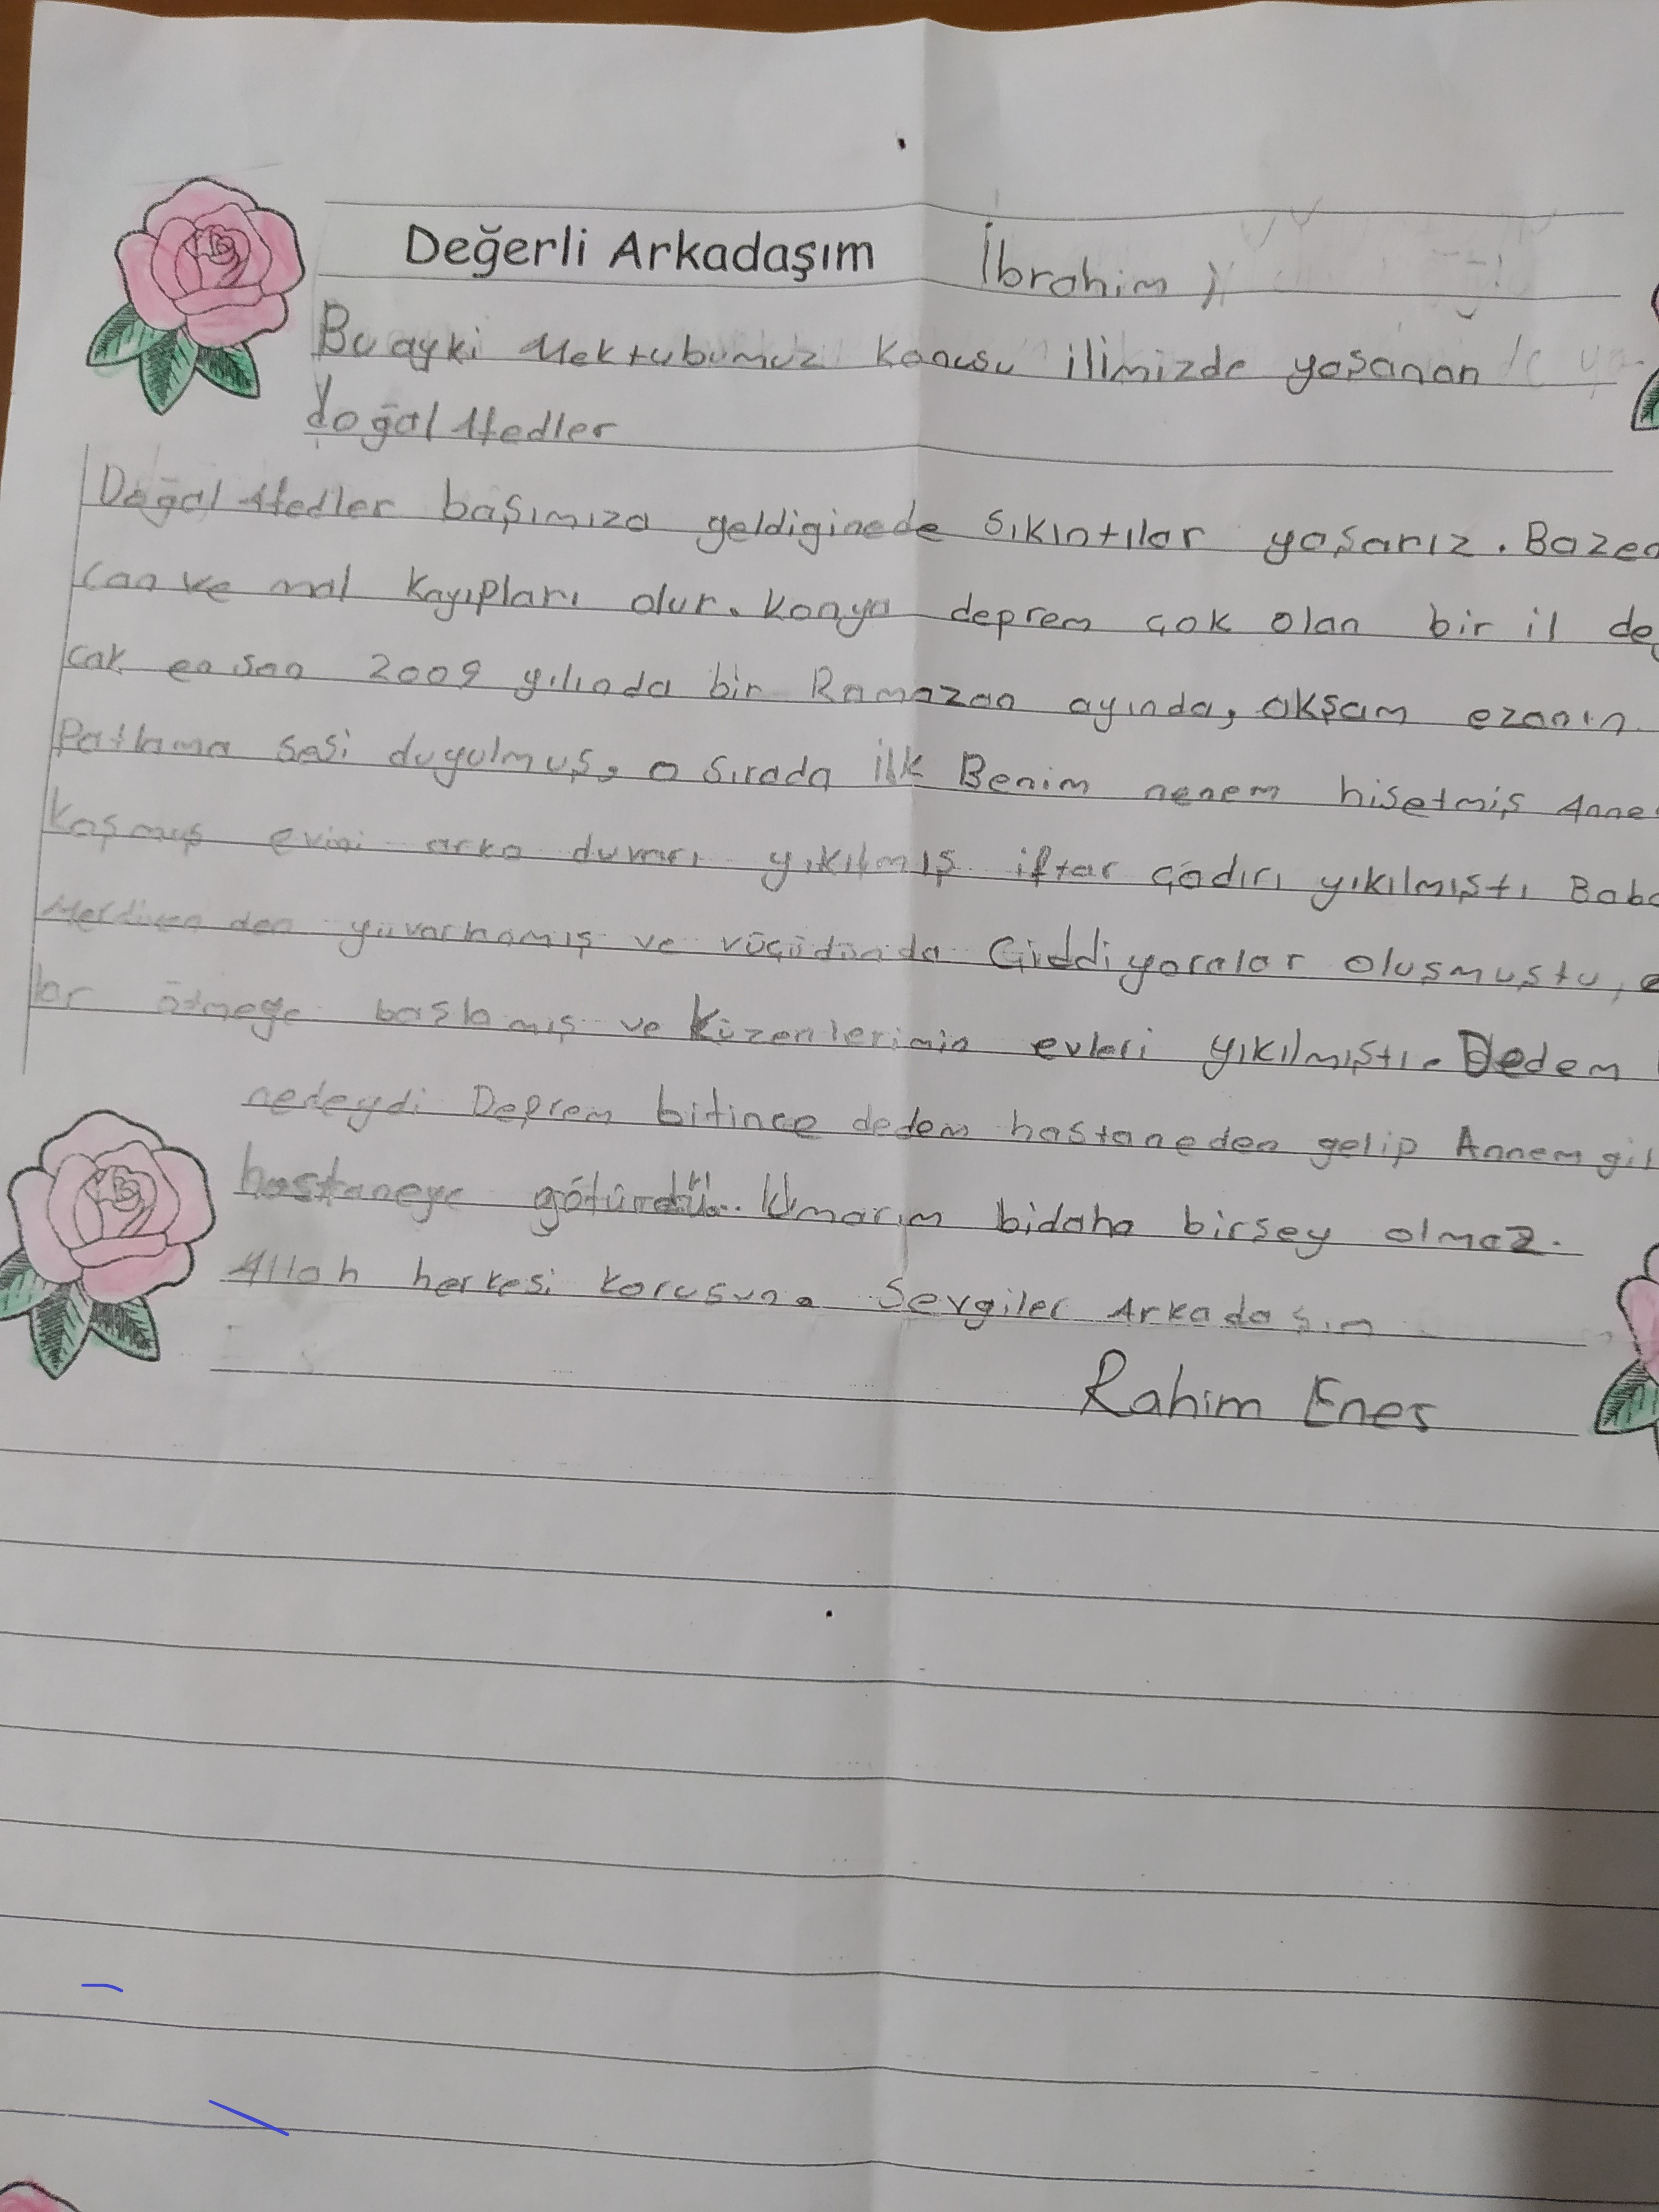 Değerli Arkadaşım İbrahim
Bu ayki Mektubumuz Konusu ilimizde yaşanan
doğal Afedler
Doğal Afedler başımıza geldiginede sıkıntılar yaşarız. Bazen
can ve mal kayıpları olur. Konya deprem çok olan bir il
cak en son 2009 yılında bir Ramazan ayında, akşam ezanın
Patlama sesi duyulmuş, o sırada ilk Benim nenem hisetmiş Anne
Koşmuş evini arka duvarı yıkılmış iftar çadırı yıkılmıştı Baba
Merdiven den yuvarlnamış ve vüçüdünda Ciddi yaralar oluşmuştu,
lar ötmeğe başlamış ve Küzenlerimin evleri yıkılmıştı. Dedem
nedeydi Deprem bitince dedem hastaneden gelip Annem gil
hastaneye götürdü. Umarım bidaha birşey olmaz.
Allah herkesi korusun. Sevgiler Arkadaşın
Rahim Enes